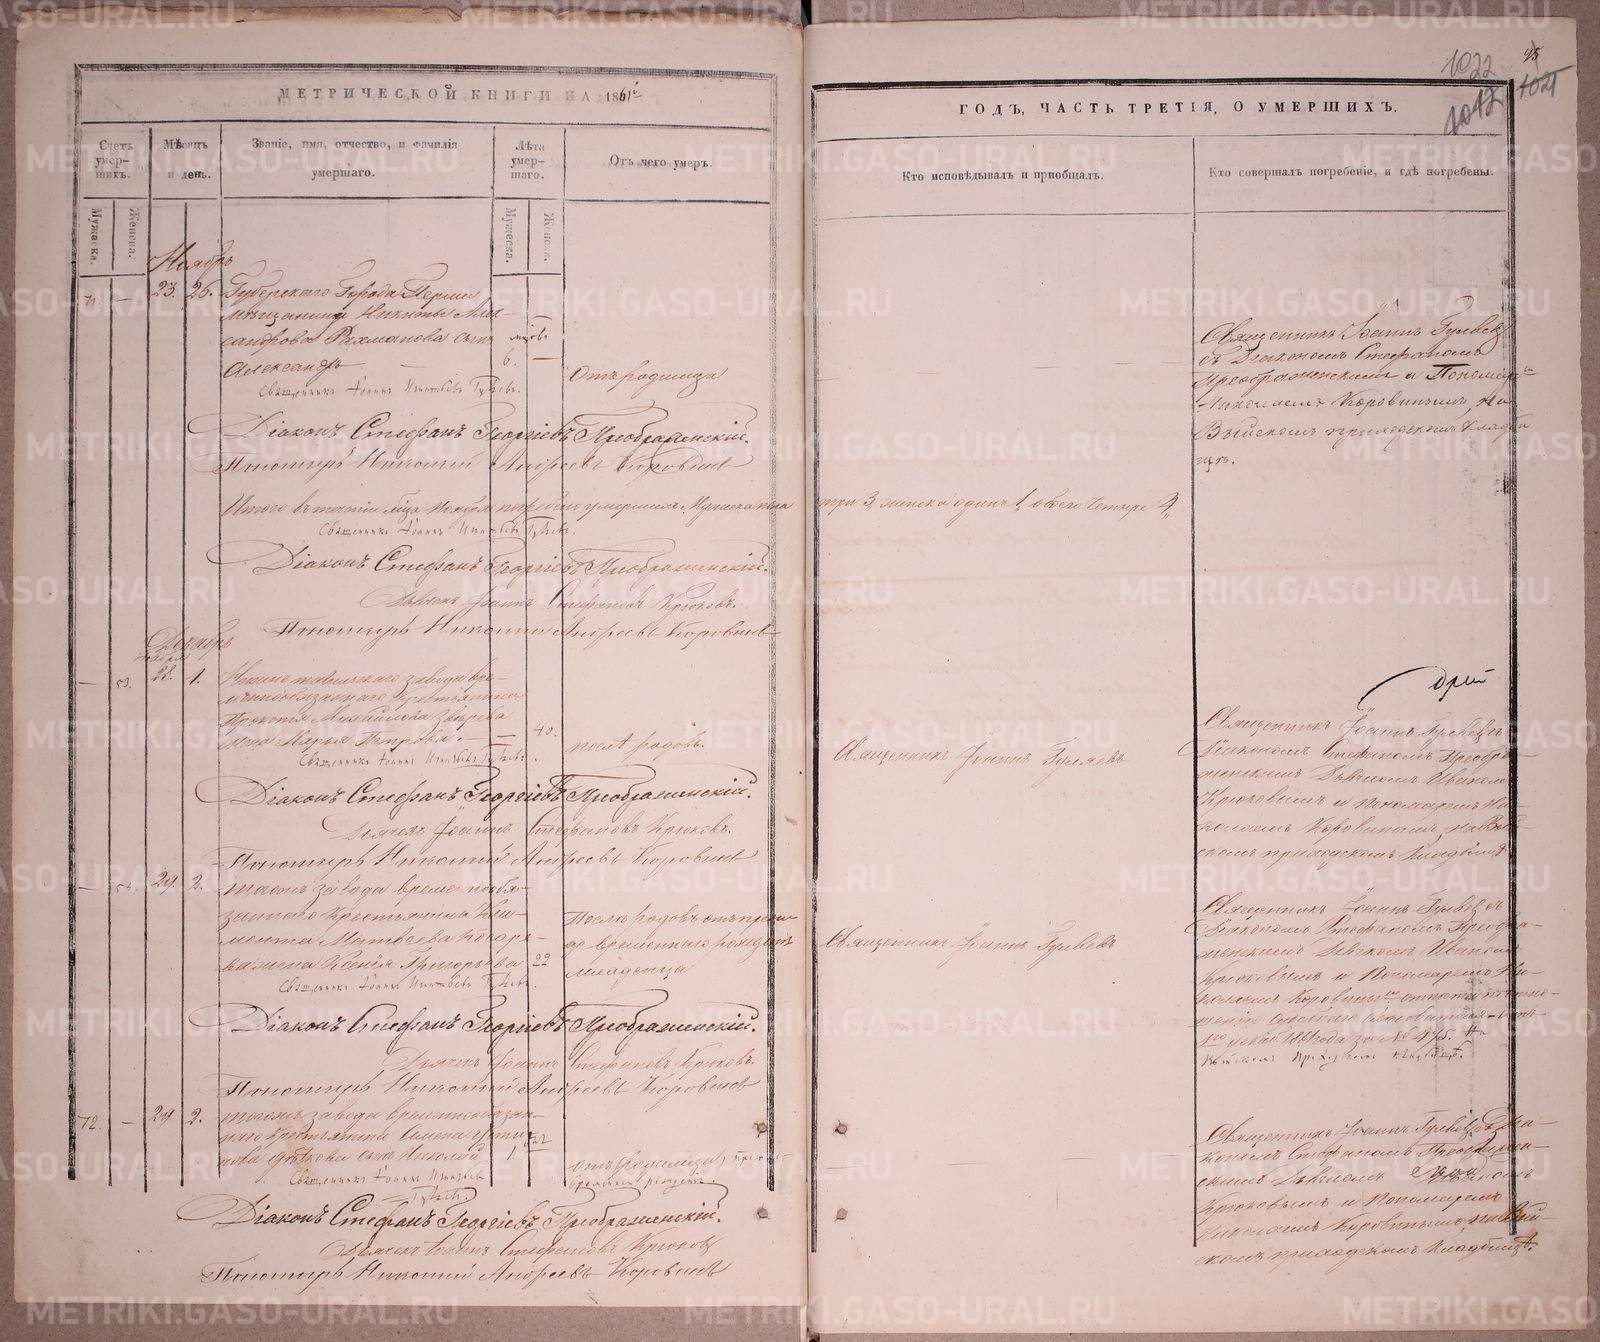 МЕТРИЧЕСКОЙ КНИГИ НА 1861й
Счетъ умер-шихъ.
Мѣсяцъ и день.
Званіе, имя, отчество, и фамилія умершаго.
Лѣта умер-шаго.
Отъ чего умеръ.
Мужеска.
Женска.
Мужеска.
Женска.
Ноябрь
23. 26. Губерскаго Города Перми
мѣщанина Никиты Алек-
сандрова Рахманова сынъ
Александръ — 6. —
Отъ родимца
Священникъ Іоаннъ Гуляевъ.
Діаконъ Стефанъ Георгіевъ Преображенскій.
Пономарь Николай Андреевъ Коровинъ
Итого въ теченіи м-ца Ноября погребено умершихъ Мужеска пола
Священникъ Іоаннъ Гуляевъ.
Діаконъ Стефанъ Георгіевъ Преображенскій.
Дьячекъ Іоаннъ Стефановъ Крюковъ.
Пономарь Николай Андреевъ Коровинъ
Декабрь
Ноября
28. 1. Нижнетагильскаго завода вре-
меннообязаннаго крестьянина
Прокопія Михайлова Звѣрева
жена Марья Петрова. — 40.
послѣ родовъ.
Священникъ Іоаннъ Гуляевъ.
Діаконъ Стефанъ Георгіевъ Преображенскій.
Дьячекъ Іоаннъ Стефановъ Крюковъ.
Пономарь Николай Андреевъ Коровинъ
— 29. 2. Тогожъ завода временнообя-
заннаго Крестьянина Кли-
мента Матвѣева
жена Ксенія Григорьева 22
Послѣ родовъ отъ преж-
де временнаго рожденія
младенца
Священникъ Іоаннъ Гуляевъ.
Діаконъ Стефанъ Георгіевъ Преображенскій.
Дьячекъ Іоаннъ Стефановъ Крюковъ.
Пономарь Николай Андреевъ Коровинъ
72. — 29 2. Тогожъ завода временнообязан-
наго крестьянина
сынъ Николай 1.
отъ родимца,
Священникъ Іоаннъ
Гуляевъ.
Діаконъ Стефанъ Георгіевъ Преображенскій.
Дьячекъ Іоаннъ Стефановъ Крюковъ
Пономарь Николай Андреевъ Коровинъ
95
1022
1012
1021
ГОДЪ, ЧАСТЬ ТРЕТІЯ, О УМЕРШИХЪ.
Кто исповѣдывалъ и пріобщалъ.
Кто совершалъ погребеніе, и гдѣ погребены.
Священникъ Іоаннъ Гуляевъ
съ Діакономъ Стефаномъ
Преображенскимъ и Пономаремъ
Николаемъ Коровинымъ, на
Выйскомъ приходскомъ кладби
щѣ.
три 3, женска одинъ 1, обоего четыре 4,
Священникъ Іоаннъ Гуляевъ
Священникъ Іоаннъ Гуляевъ съ
Діакономъ Стефаномъ Преобра-
женскимъ Дьячкомъ Иваномъ
Крюковымъ и пономаремъ Ни-
колаемъ Коровинымъ, на Вый-
скомъ приходскомъ кладбищѣ
Священникъ Іоаннъ Гуляевъ
Священникъ Іоаннъ Гуляевъ съ
Діакономъ Стефаномъ Преобра-
женскимъ Дьячкомъ Иваномъ
Крюковымъ и Пономаремъ Ни-
колаемъ Коровинымъ
На
Выйскомъ Приходскомъ кладбищѣ.
Священникъ Іоаннъ Гуляевъ съ Діа-
кономъ Стефаномъ Преображен-
скимъ Дьячкомъ Иваномъ
Крюковымъ и Пономаремъ
Николаемъ Коровинымъ, на Вый-
скомъ приходскомъ кладбищѣ.
METRIKI.GASO-URAL.RU